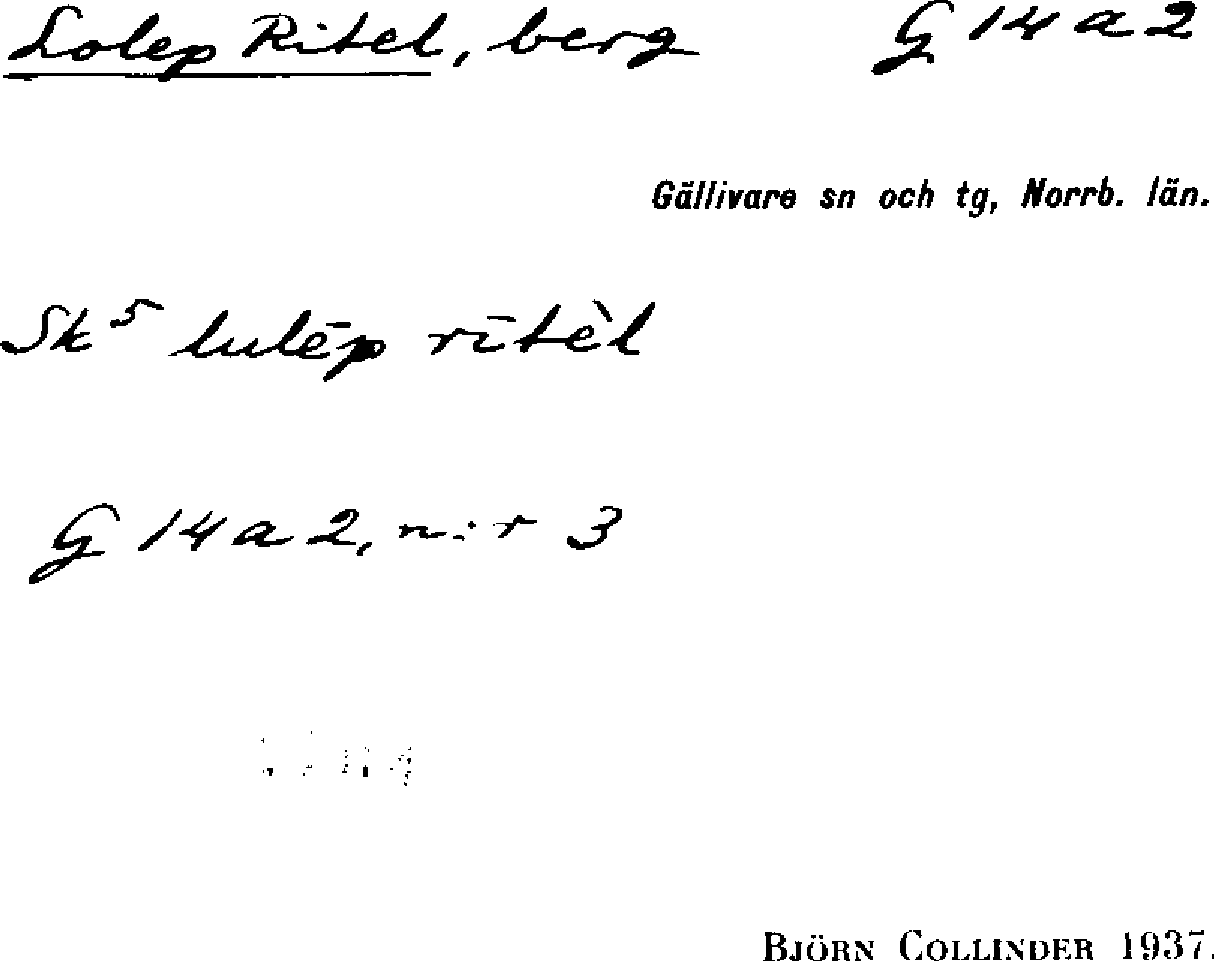 Lolep Ritel, berg G 14 a 2
Gällivare sn och tg, Norrb. län.
Sk⁵ lulēp rītèl
G 14 a 2, n:r 3
BJÖRN COLLINDER 1937.